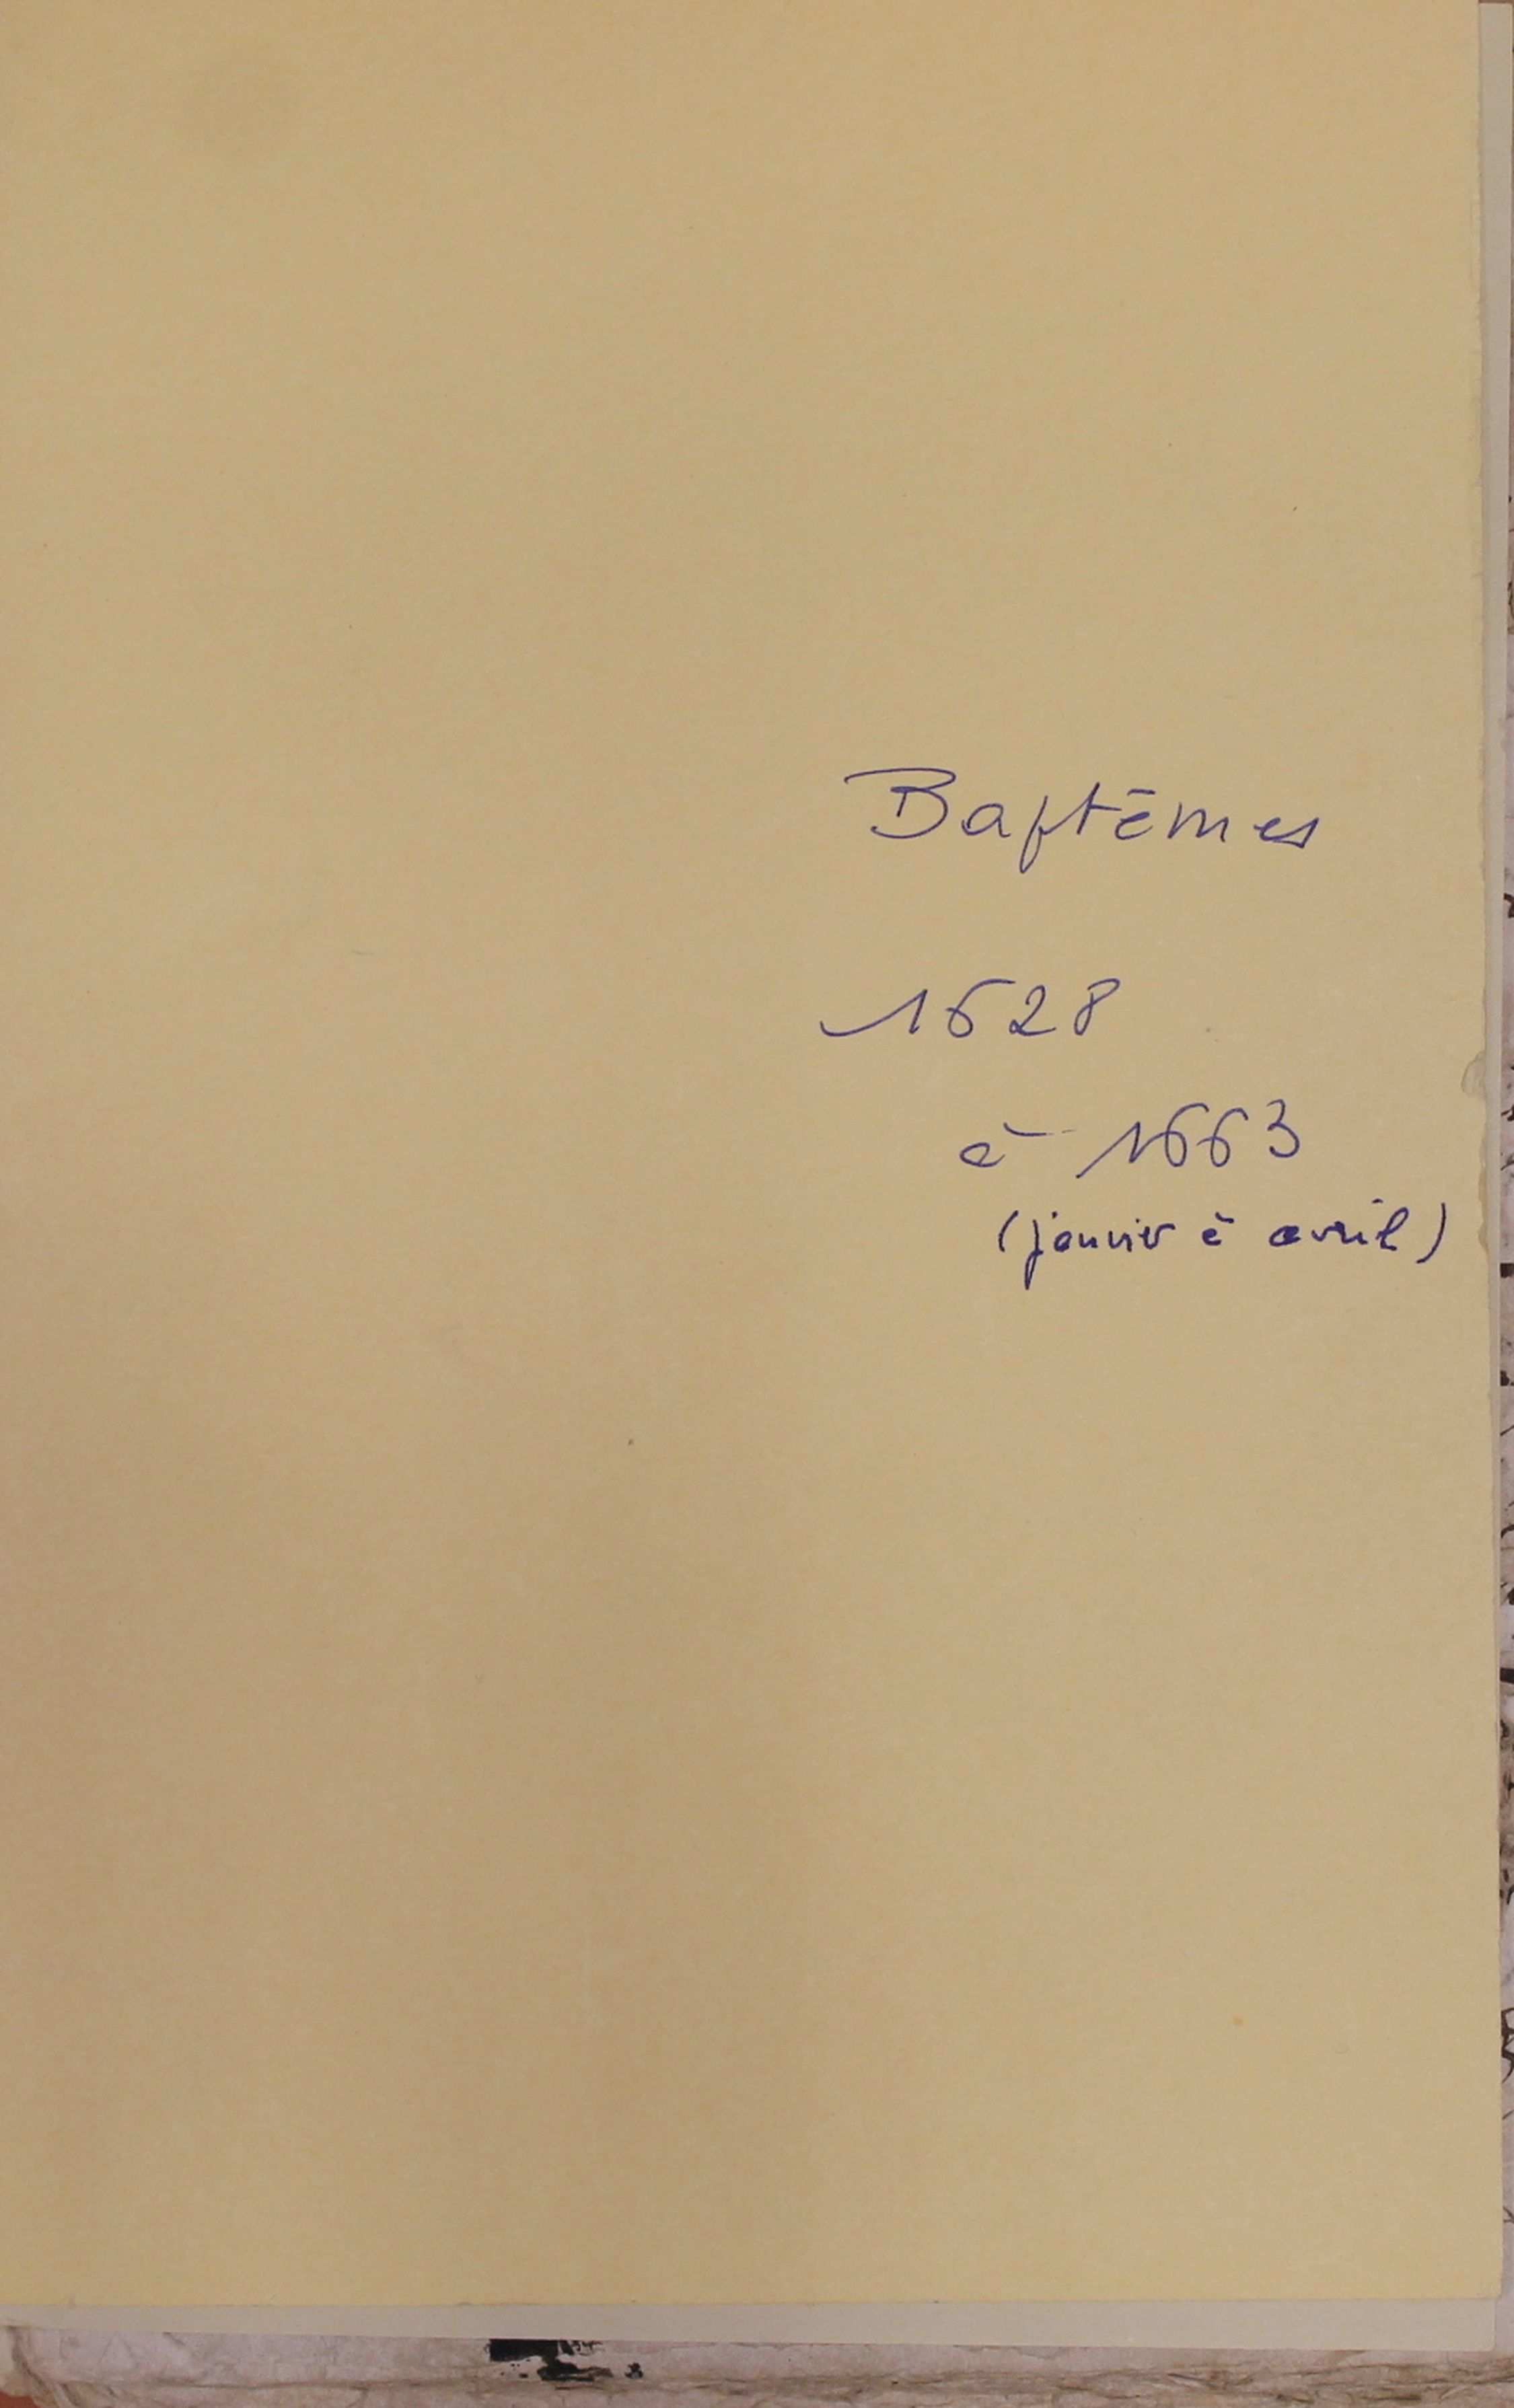 Baptêmes
1628
à 1663
(janvier à avril)